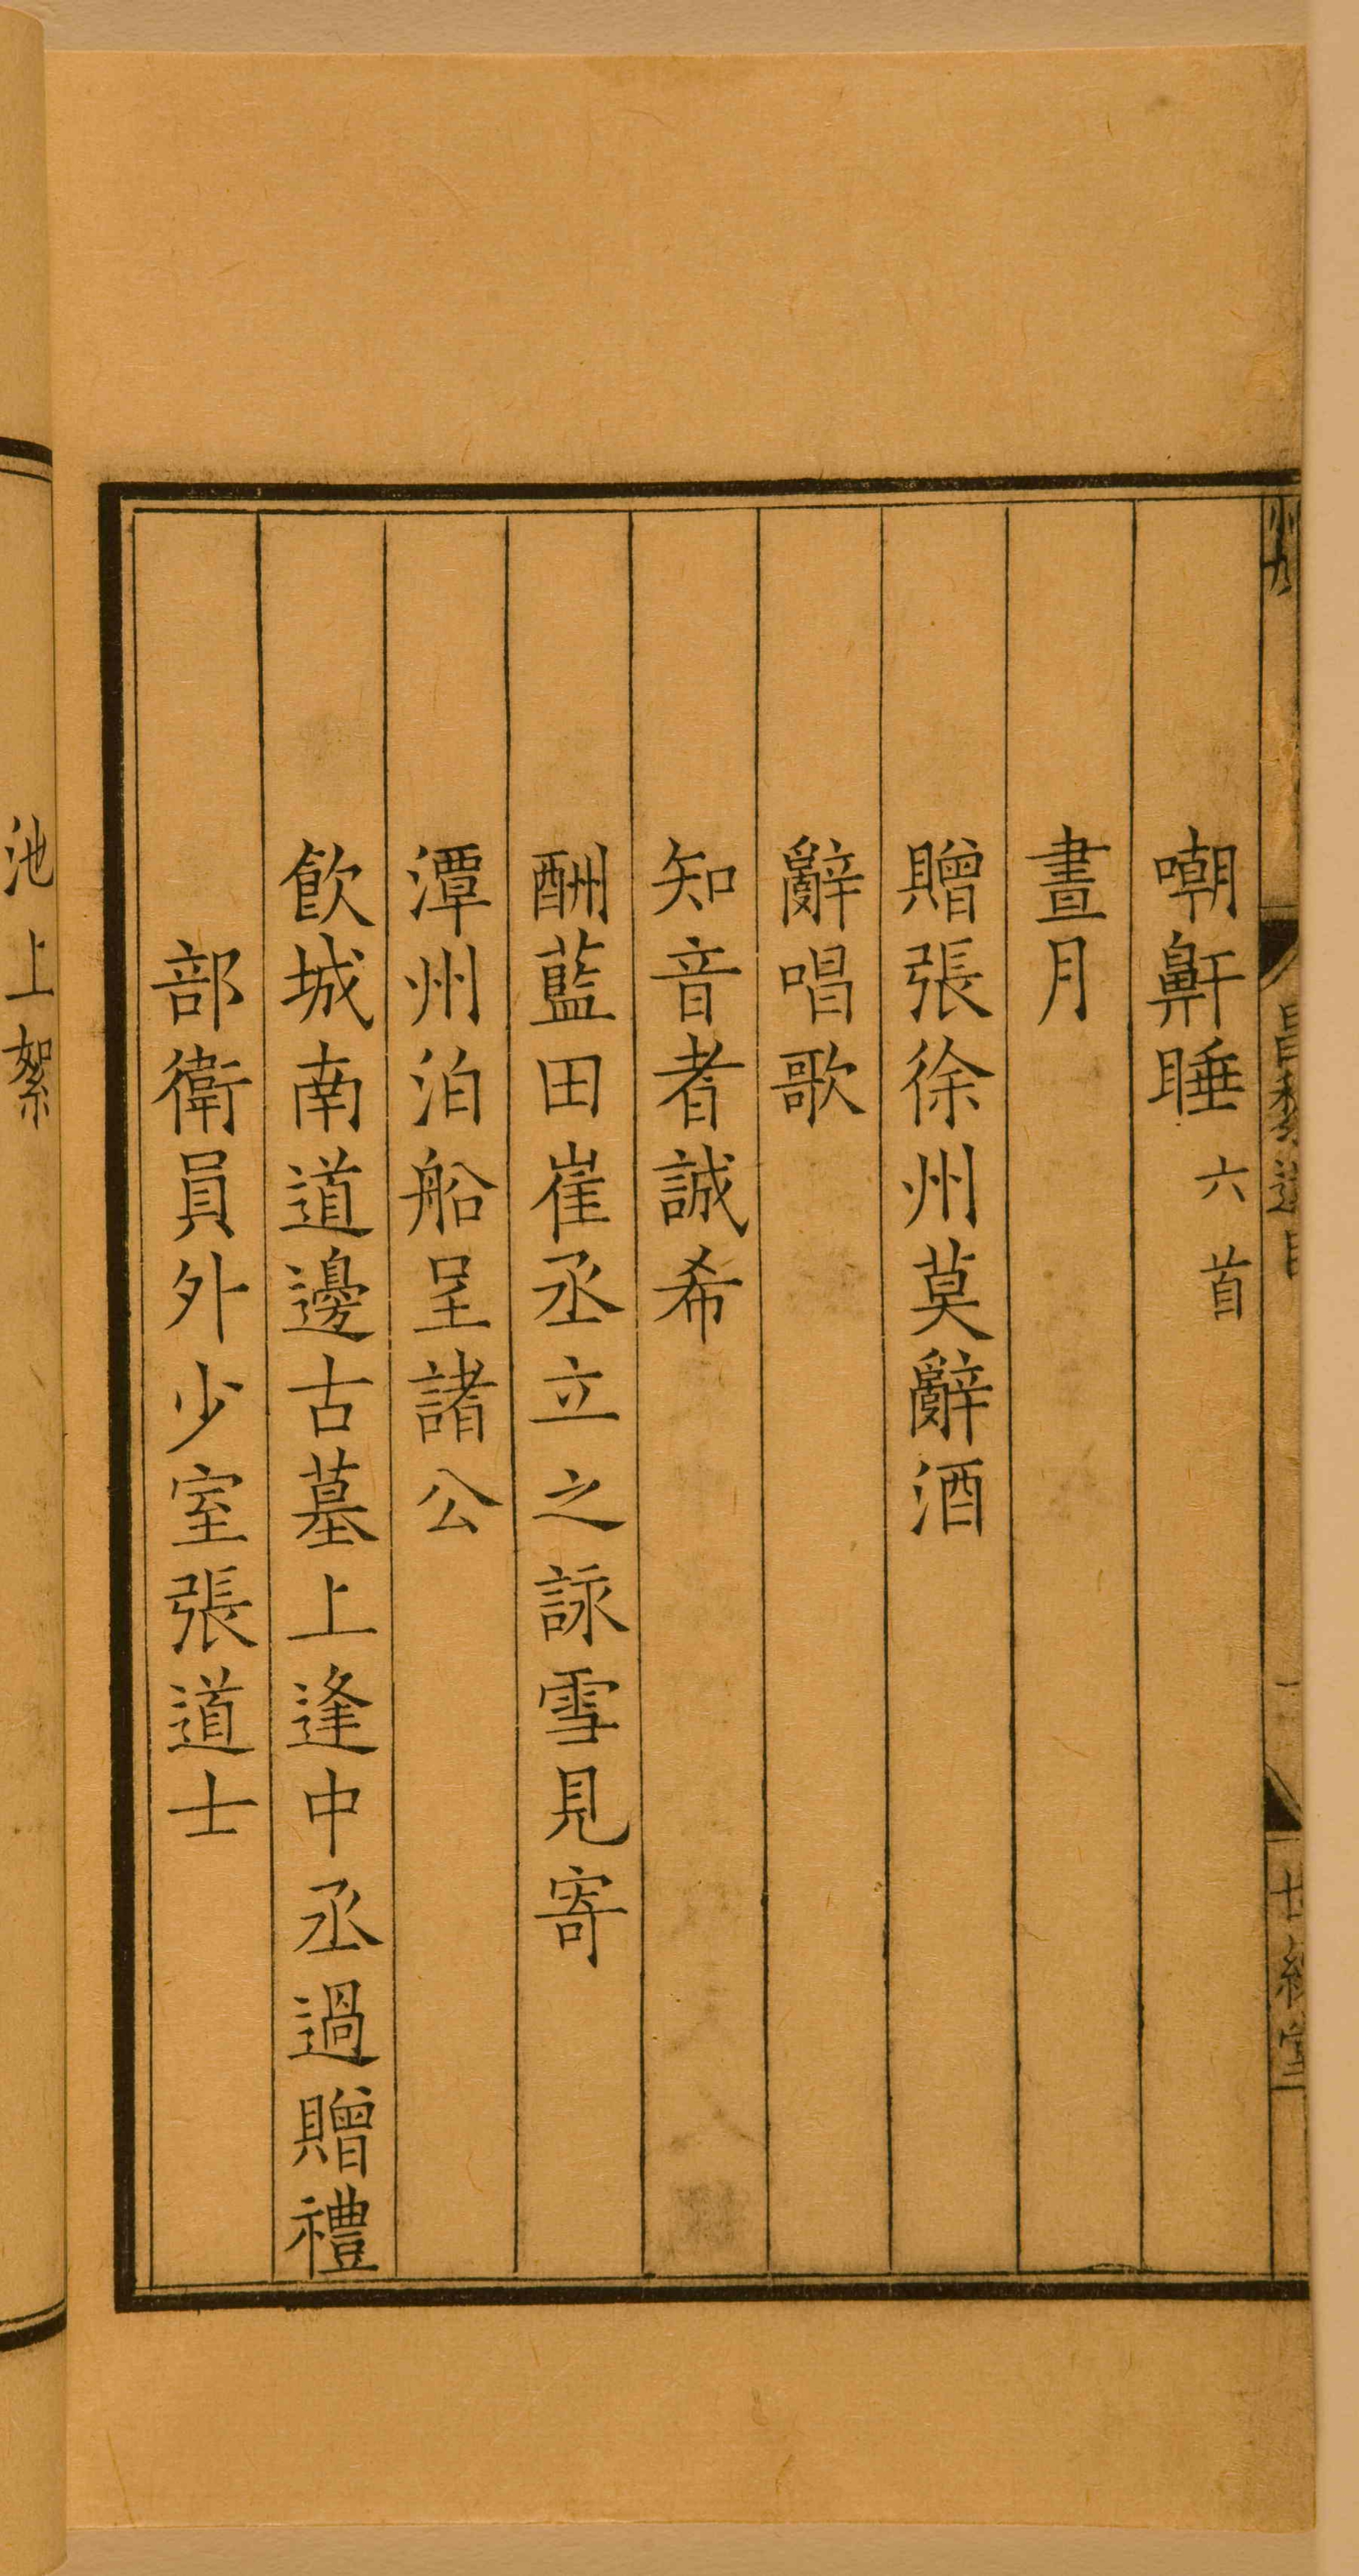 嘲鼾睡 六首
晝月
贈張徐州莫辭酒
辭唱歌
知音者誠希
酬藍田崔丞立之詠雪見寄
潭州泊船呈諸公
飲城南道邊古墓上逢中丞過贈禮
部衛員外少室張道士
池上絮